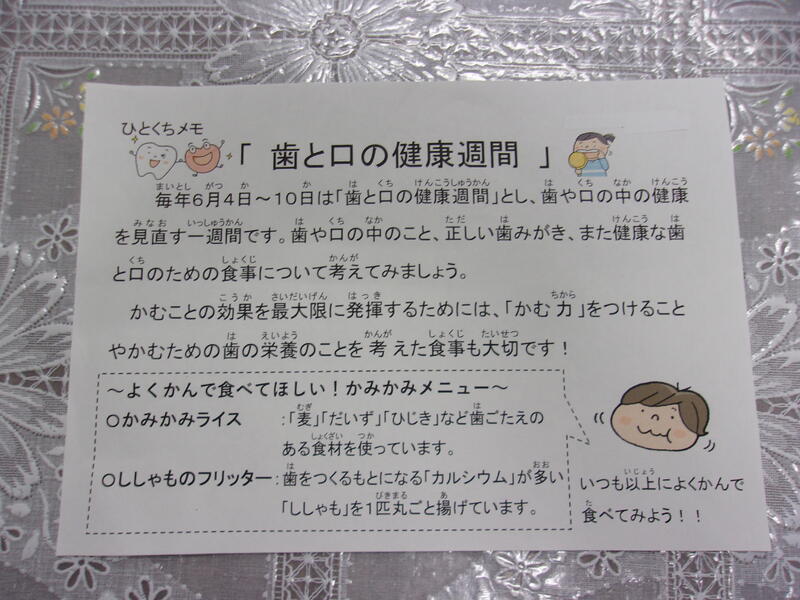 ひとくちメモ
「 歯と口の健康週間 」
毎年6月4日～10日は「歯と口の健康週間」とし、歯や口の中の健康
を見直す一週間です。歯や口の中のこと、正しい歯みがき、また健康な歯
と口のための食事について考えてみましょう。
かむことの効果を最大限に発揮するためには、「かむ力」をつけること
やかむための歯の栄養のことを考えた食事も大切です！
～よくかんで食べてほしい！かみかみメニュー～
○かみかみライス ：「麦」「だいず」「ひじき」など歯ごたえの
ある食材を使っています。
○ししゃものフリッター：歯をつくるもとになる「カルシウム」が多い
「ししゃも」を1匹丸ごと揚げています。
いつも以上によくかんで
食べてみよう！！